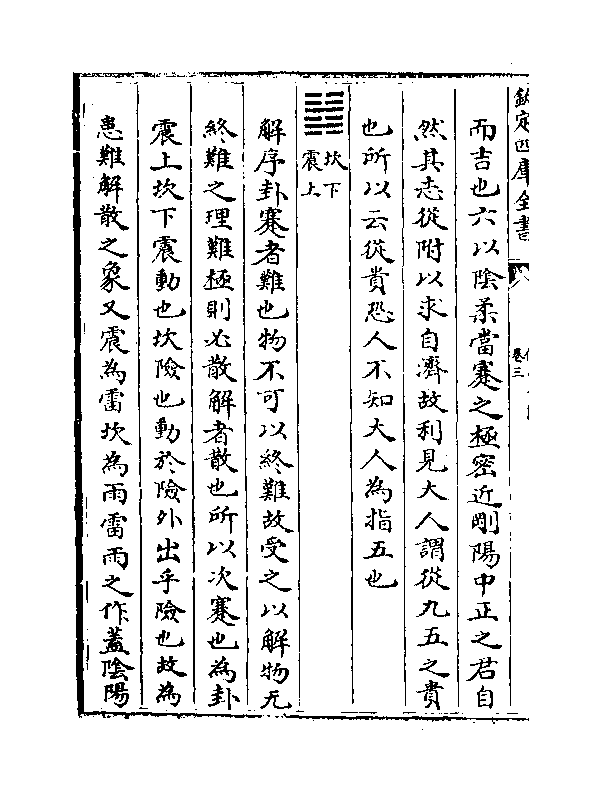 欽定四庫全書
卷三
而吉也六以陰柔當蹇之極密近剛陽中正之君自
然其志從附以求自濟故利見大人謂從九五之貴
也所以云從貴恐人不知大人為指五也
坎下
震上
解序卦蹇者難也物不可以終難故受之以解物无
終難之理難極則必散解者散也所以次蹇也為卦
震上坎下震動也坎險也動於險外出乎險也故為
患難解散之象又震為雷坎為雨雷雨之作蓋陰陽